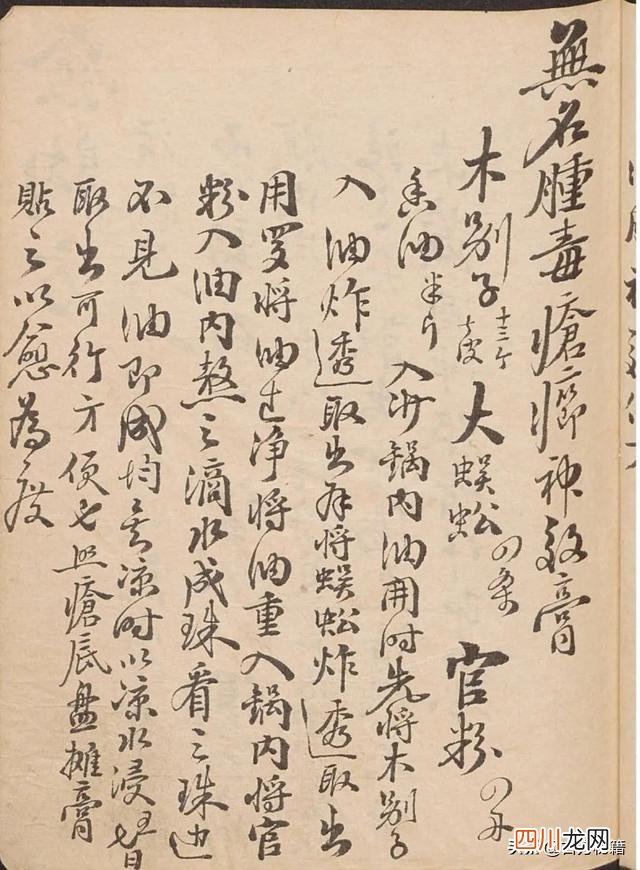 無名腫毒瘡癤神效膏
木別子十三个去皮 大蜈蚣四条 官粉四两
香油半斤 入沙鍋内油開时先將木別子
入油炸透取出再將蜈蚣炸透取出
用罗將油过净將油重入鍋内將官
粉入油内熬之滴水成珠看之珠边
不见油即成均 凉时以凉水浸 七日
取出可行方便也照瘡底盘摊膏
貼之以愈為度
四川龙网
头条